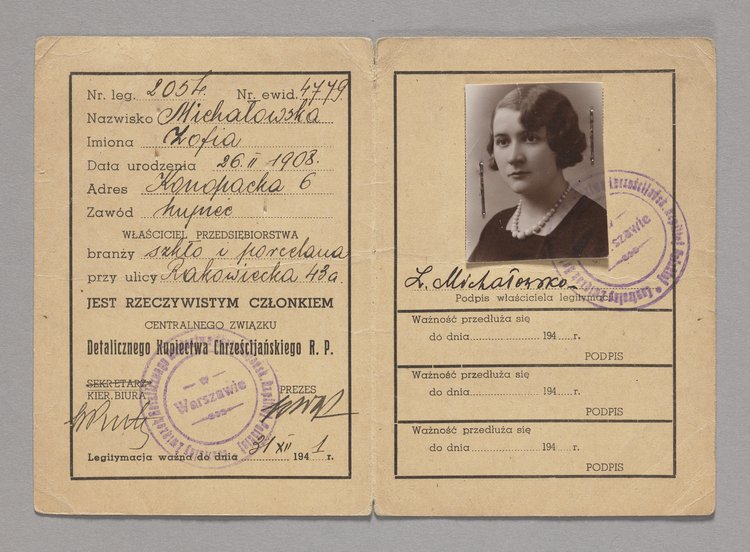 Nr. leg. 2054 Nr. ewid. 4779
Nazwisko Michałowska
Imiona Zofia
Data urodzenia 26.II 1908.
Adres Konopacka 6
Zawód kupiec
WŁAŚCICIEL PRZEDSIĘBIORSTWA
branży szkło i porcelana
przy ulicy Rakowiecka 43a
JEST RZECZYWISTYM CZŁONKIEM
CENTRALNEGO ZWIĄZKU
Detalicznego Kupiectwa Chrześcijańskiego R. P.
SEKRETARZ
KIER. BIURA PREZES
w
Warszawie
Legitymacja ważna do dnia 31 XII 1941 r.
w
Warszawie
Z. Michałowska
Podpis właściciela legitymacji
Ważność przedłuża się
do dnia 194 r.
PODPIS
Ważność przedłuża się
do dnia 194 r.
PODPIS
Ważność przedłuża się
do dnia 194 r.
PODPIS